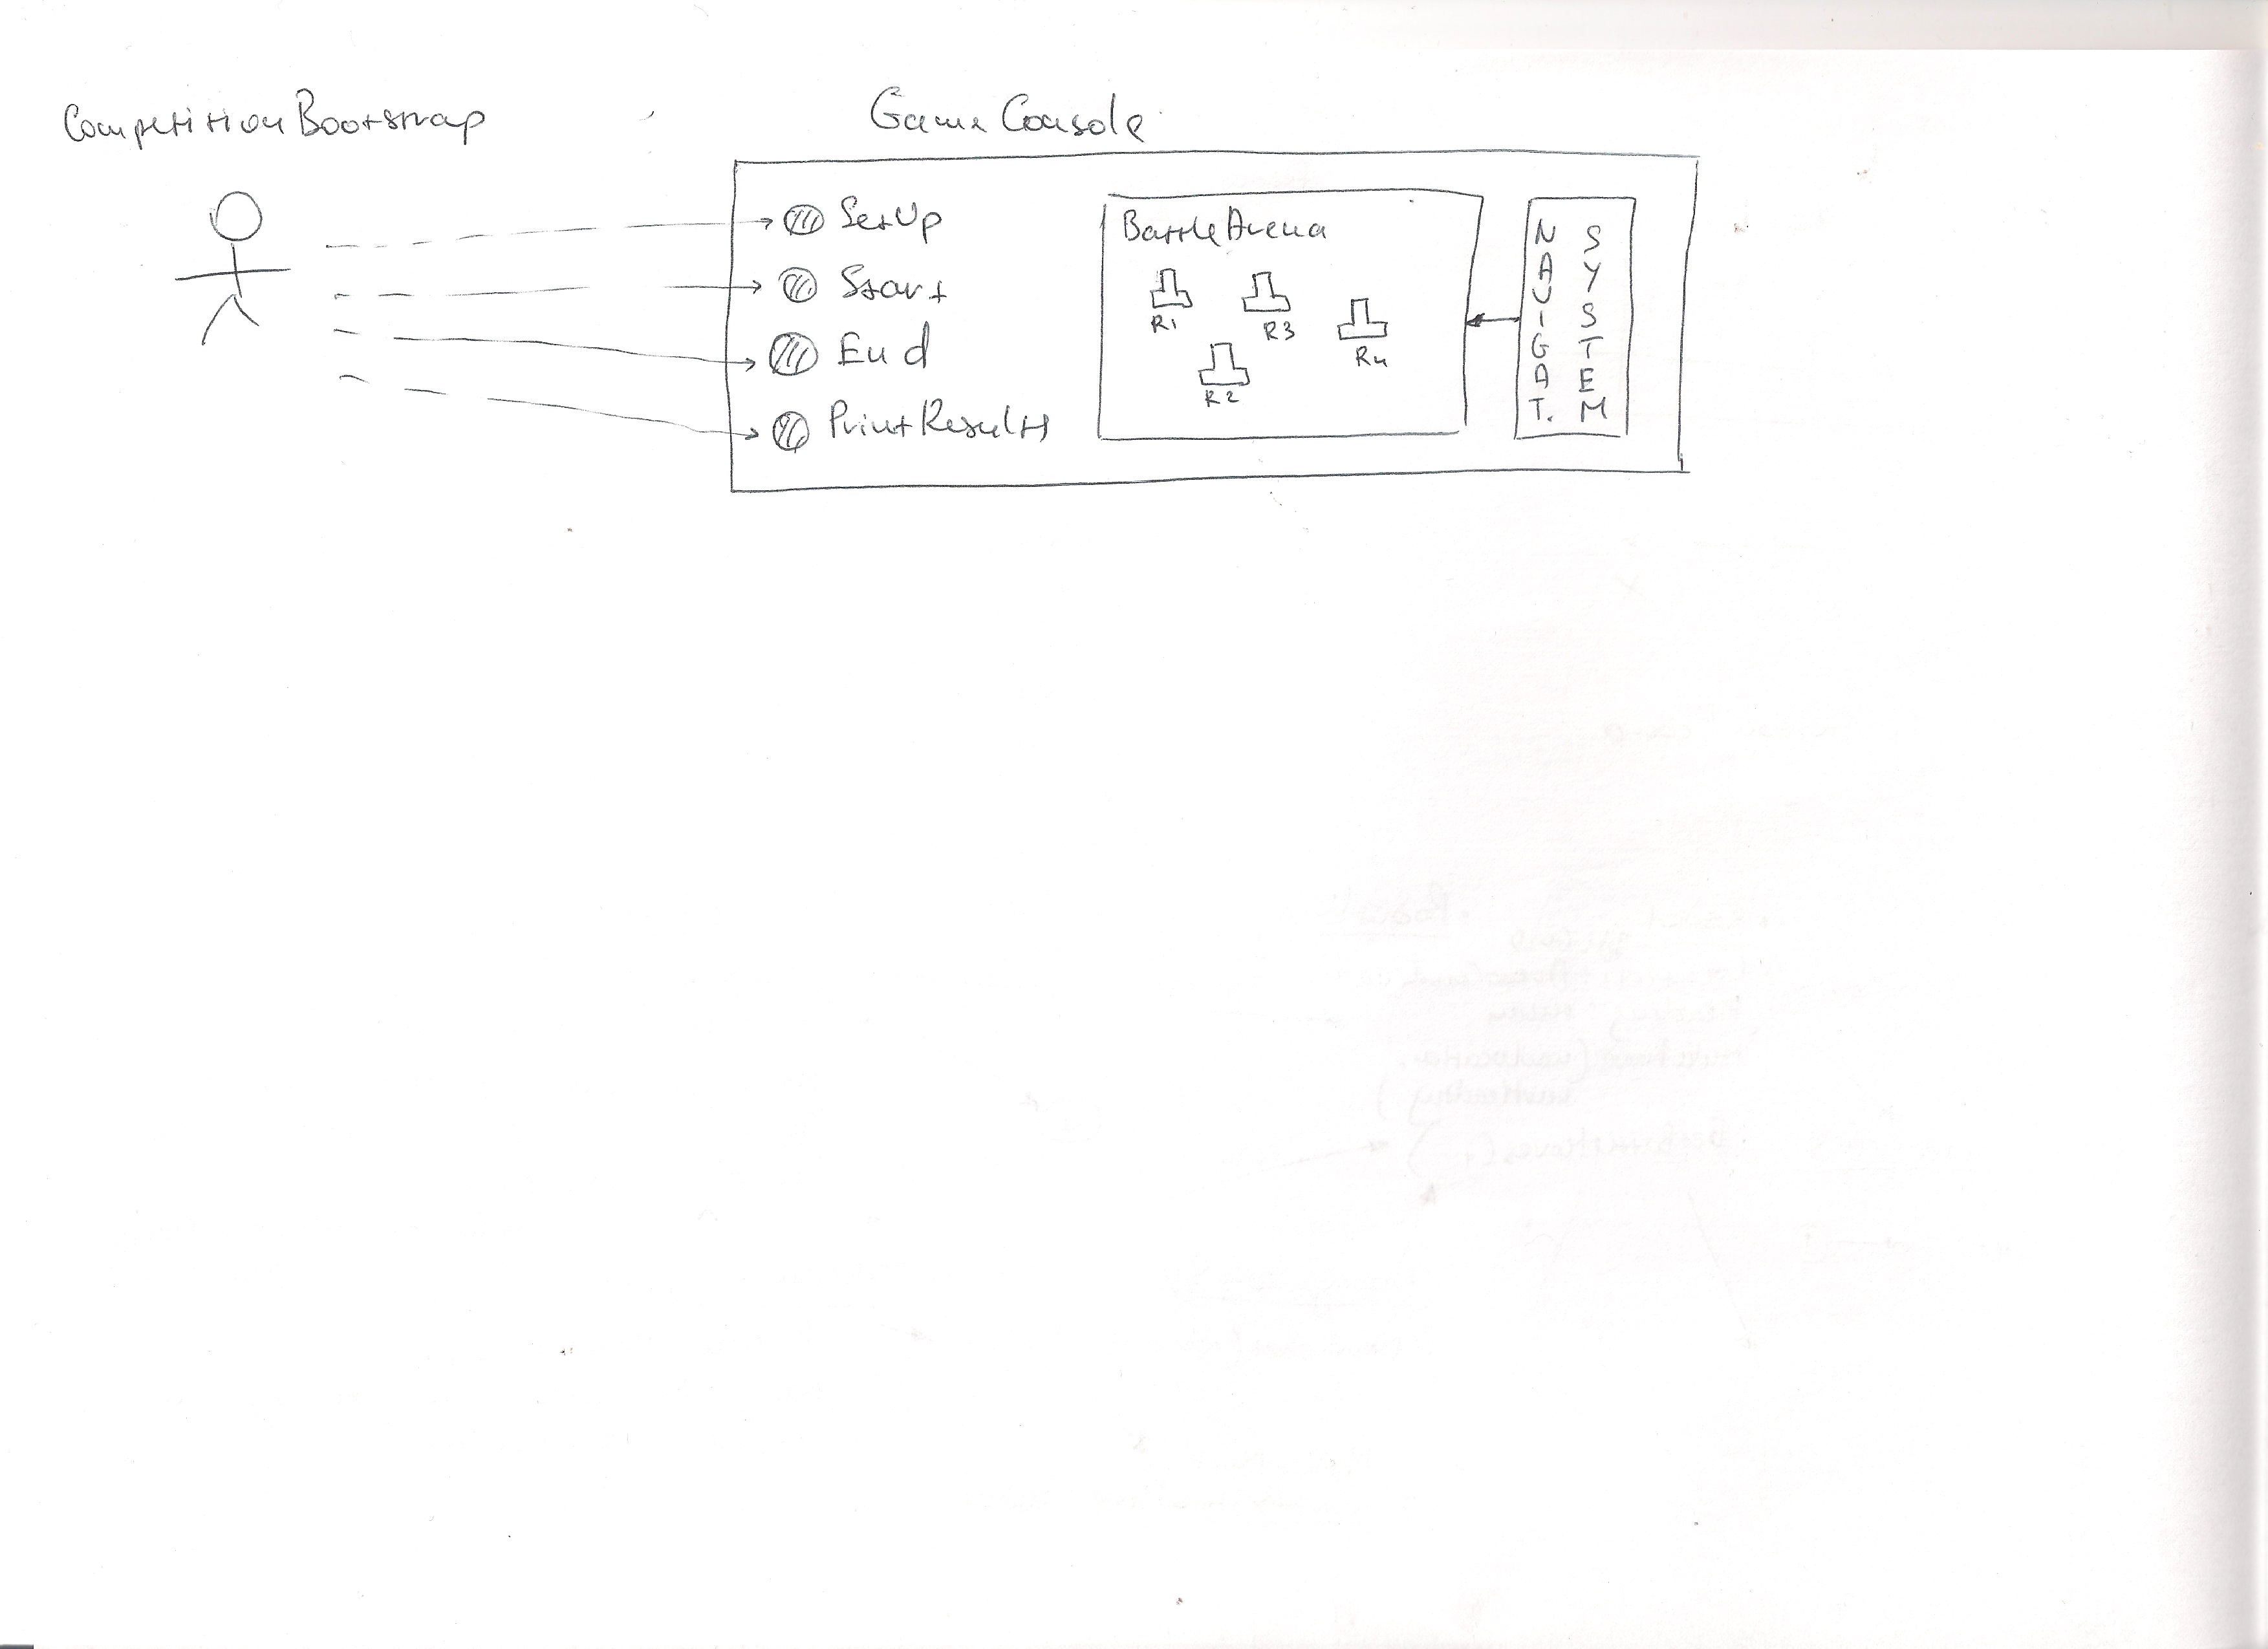 CompetitionBootstrap
GameConsole
SetUp
Start
End
PrintResults
BattleArena
R1
R3
R4
R2
NAVIGAT.
SYSTEM